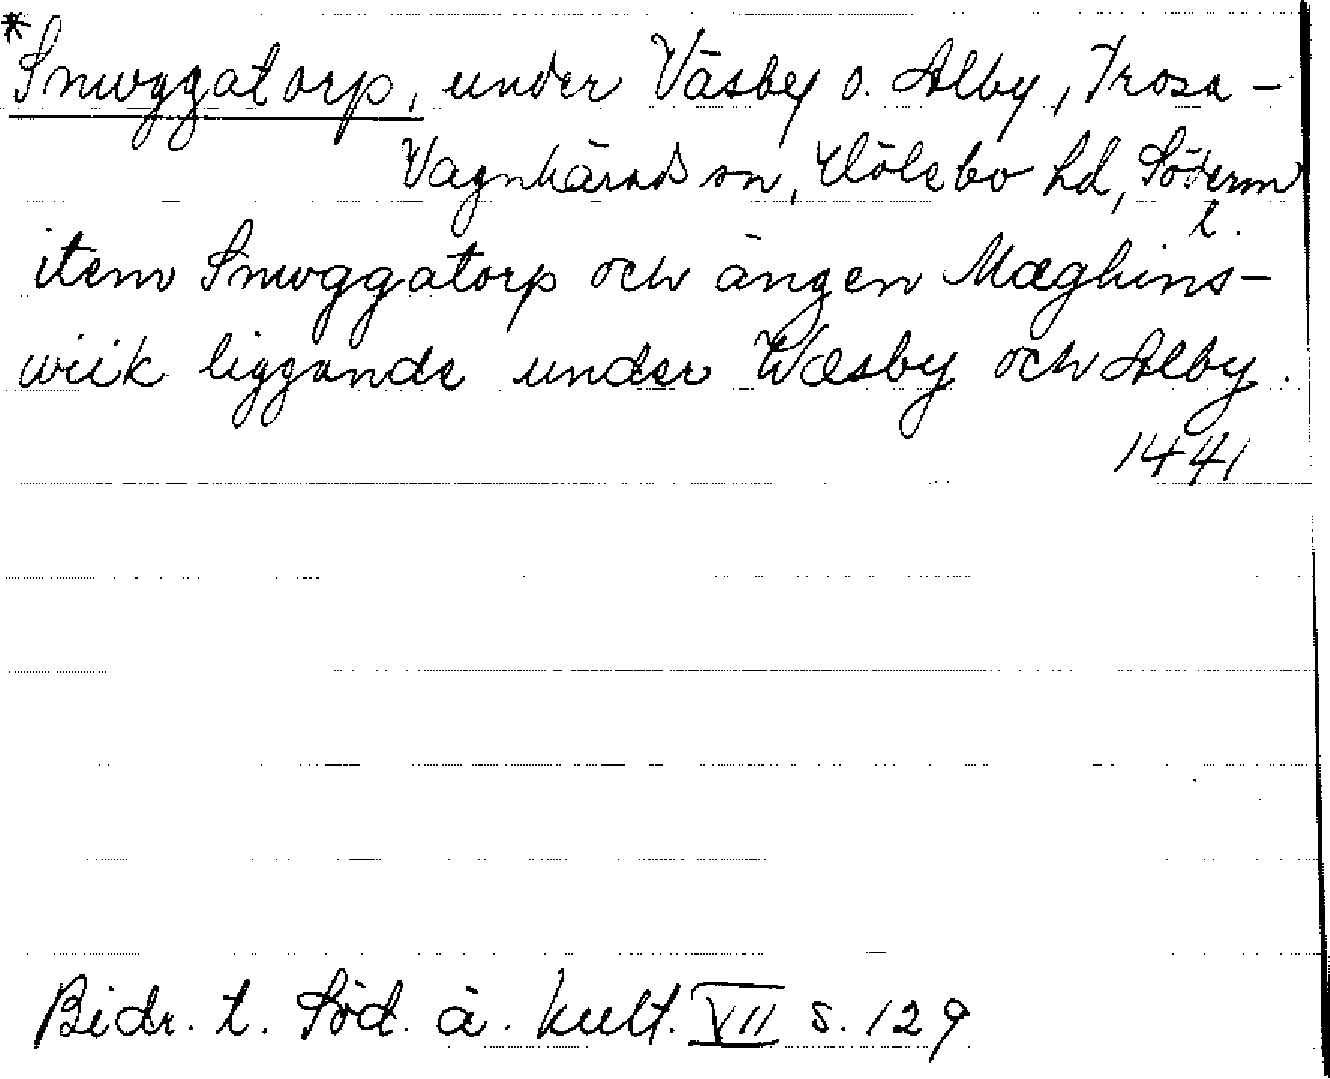 *Snuggatorp, under Väsby o. Alby, Trosa-
Vagnhärads sn, Hölebo hd, Söderm
l.
item Snuggatorp och ängen Mæghins-
wiik liggande under Wæsby och Alby.
1441
Bidr. t. Söd. ä. kult. VII s. 129